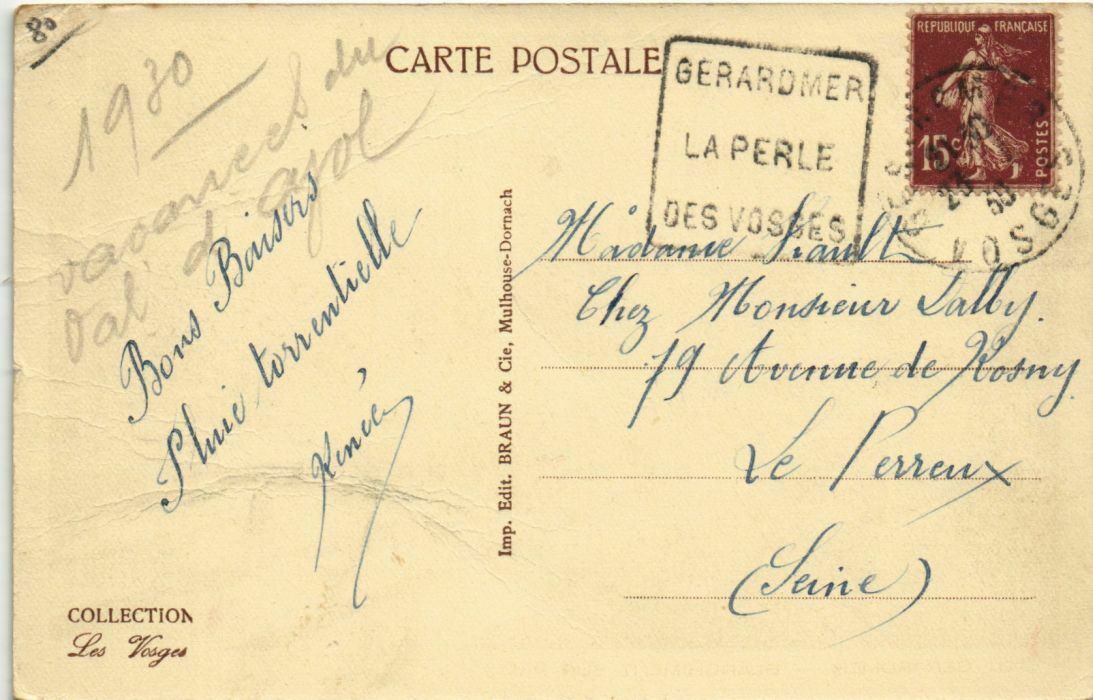 80
1930
vacances du
val d'ajol
CARTE POSTALE
Bons Baisers
Pluie torrentielle
Renée
COLLECTION
Les Vosges
Imp. Edit. BRAUN & Cie, Mulhouse-Dornach
GERARDMER
LA PERLE
DES VOSGES
REPUBLIQUE FRANÇAISE
15c
POSTES
VOSGES
Madame
Chez Monsieur Dalby.
79 Avenue de Rosny
Le Perreux
(Seine)